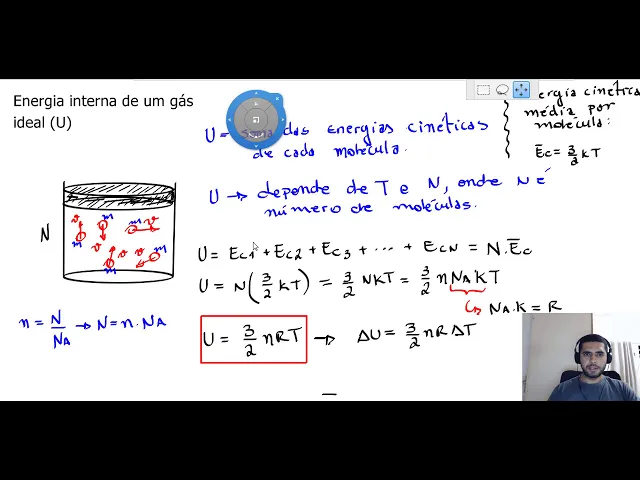 Energia interna de um gás
ideal (U)
U = soma das energias cinéticas
de cada molécula.
energia cinética
média por
molécula:
Ēc = 3/2 kT
U → depende de T e N, onde N é
número de moléculas.
N
m m m m m
v v v v v
U = Ec1 + Ec2 + Ec3 + ... + EcN = N.Ēc
U = N(3/2 kT) = 3/2 NkT = 3/2 nNAkT
↳ NA.k = R
n = N/NA → N = n.NA
U = 3/2 nRT → ΔU = 3/2 nRΔT